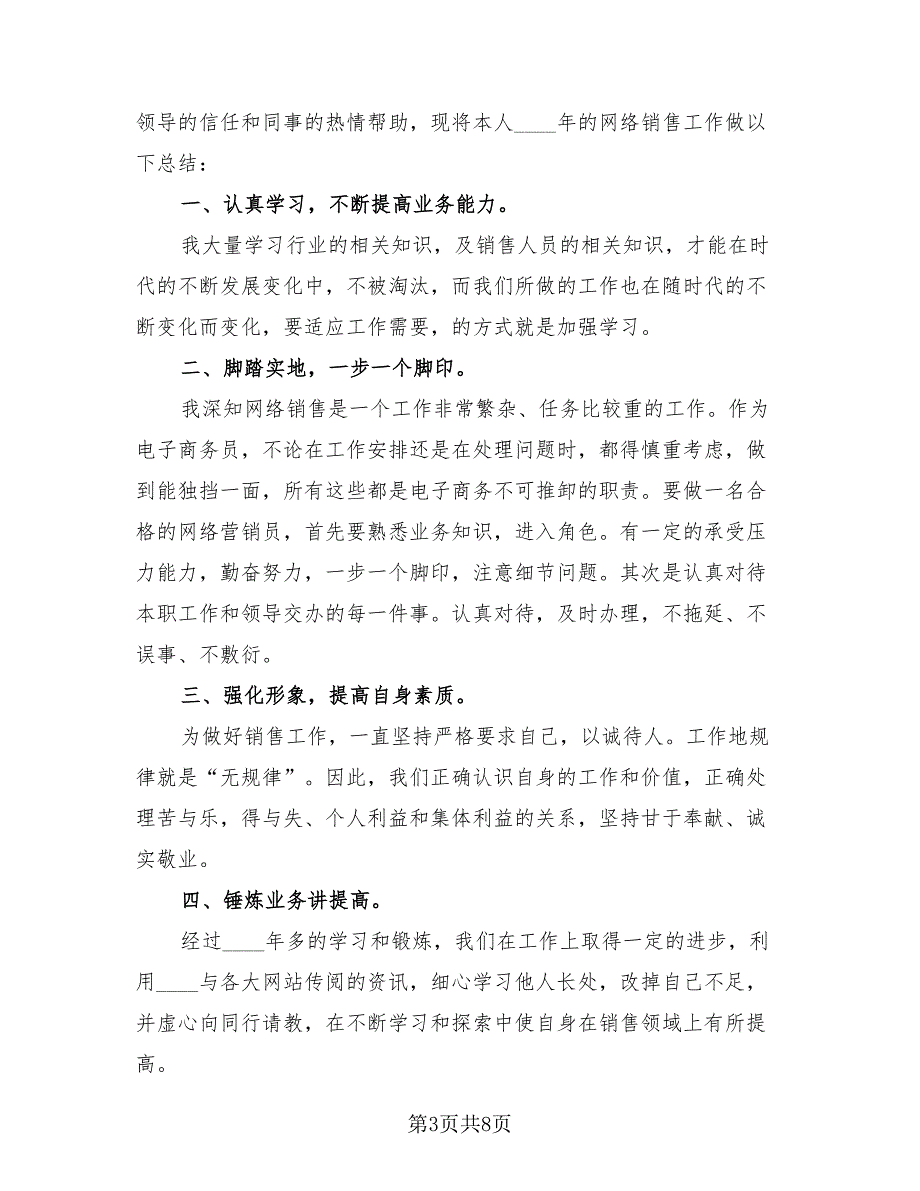 领导的信任和同事的热情帮助，现将本人____年的网络销售工作做以
下总结：
一、认真学习，不断提高业务能力。
我大量学习行业的相关知识，及销售人员的相关知识，才能在时
代的不断发展变化中，不被淘汰，而我们所做的工作也在随时代的不
断变化而变化，要适应工作需要，的方式就是加强学习。
二、脚踏实地，一步一个脚印。
我深知网络销售是一个工作非常繁杂、任务比较重的工作。作为
电子商务员，不论在工作安排还是在处理问题时，都得慎重考虑，做
到能独挡一面，所有这些都是电子商务不可推卸的职责。要做一名合
格的网络营销员，首先要熟悉业务知识，进入角色。有一定的承受压
力能力，勤奋努力，一步一个脚印，注意细节问题。其次是认真对待
本职工作和领导交办的每一件事。认真对待，及时办理，不拖延、不
误事、不敷衍。
三、强化形象，提高自身素质。
为做好销售工作，一直坚持严格要求自己，以诚待人。工作地规
律就是“无规律”。因此，我们正确认识自身的工作和价值，正确处
理苦与乐，得与失、个人利益和集体利益的关系，坚持甘于奉献、诚
实敬业。
四、锤炼业务讲提高。
经过____年多的学习和锻炼，我们在工作上取得一定的进步，利
用____与各大网站传阅的资讯，细心学习他人长处，改掉自己不足，
并虚心向同行请教，在不断学习和探索中使自身在销售领域上有所提
高。
第3页共8页